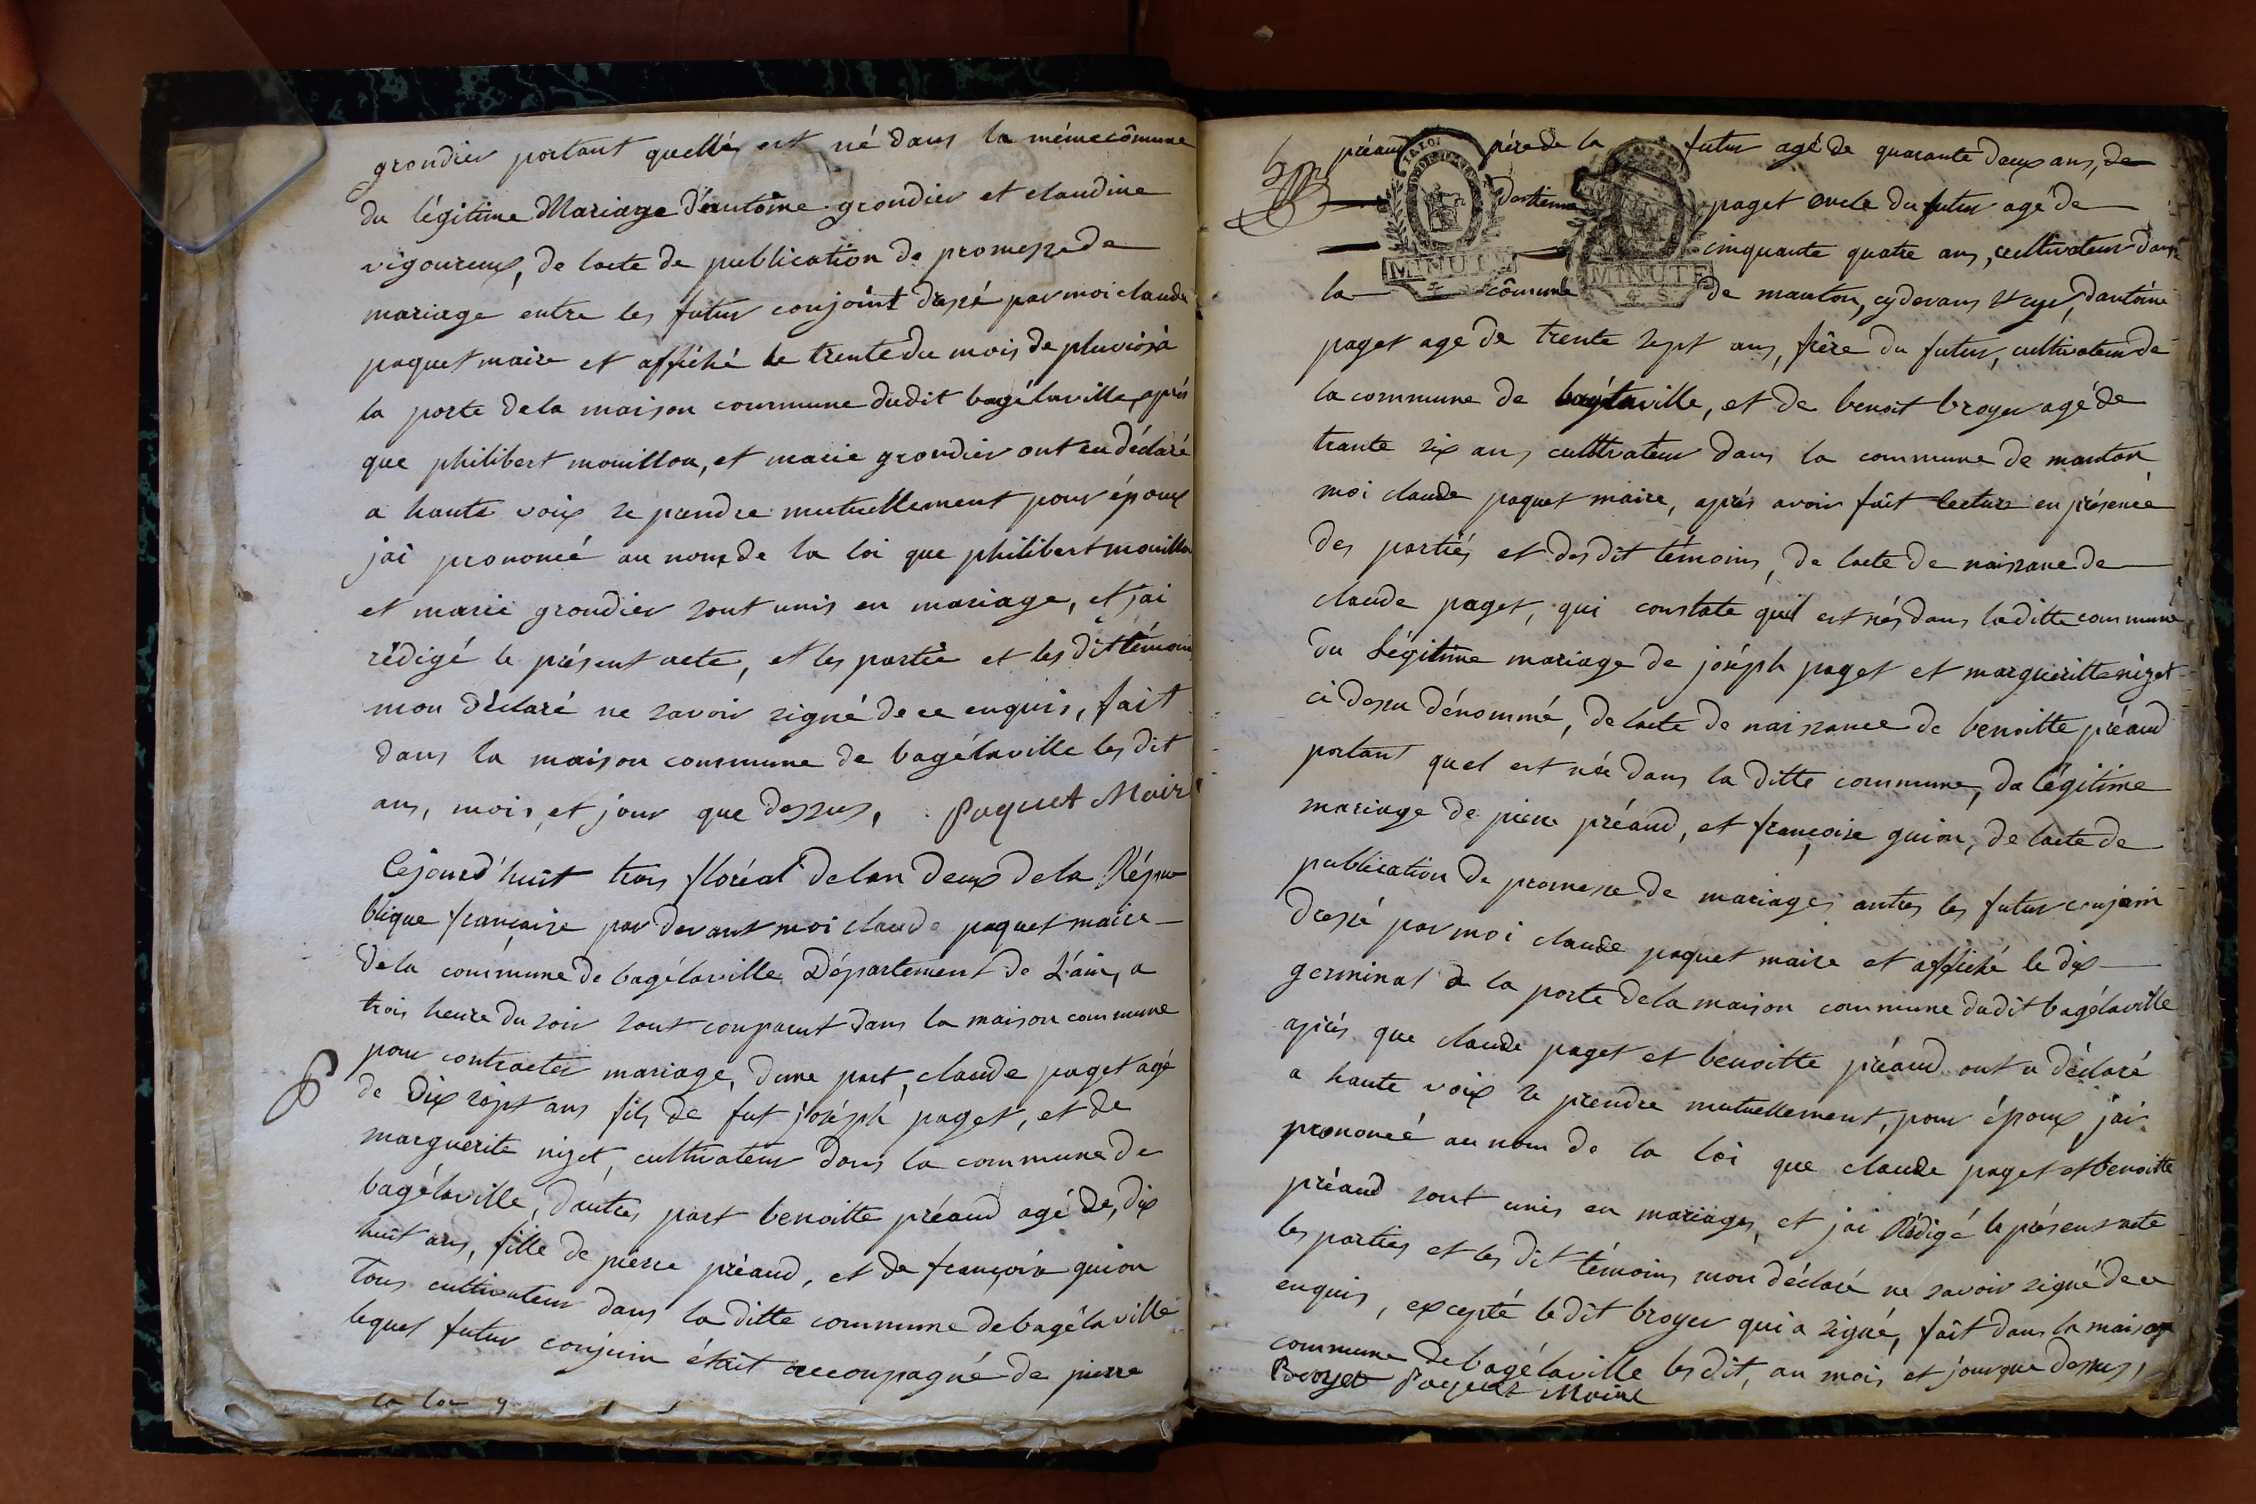 grondier portant quellés est né dans la mémecômmune
du légitime Mariage d'éantôine grondier et claudine
vigoureux, de lacte de publication de promesse de
mariage entre les futur conjoint dressé par moi claude
paquet maire et affiché le trente du mois de pluviose à
la porte dela maison commune dudit bagélaville, aprés
que philibert mouillon, et marie grondier ont eu déclaré
a haute voix se prendre mutuellement pour époux
jai prononcé au nom de la loi que philibert mouillon
et marie grondier sont unis en mariage, et j'ai
rédigé le présent acte, et les partie et les dit témoins
mon déclaré ne savoir signé de ce enquis, fait
dans la maison commune de bagélaville les dit
ans, mois et jour que dessus, Paquet Maire
Cejourd'huit trois floréal delan deux dela Répu
blique françaire par devant moi claude paquet maire
dela commune de bagélaville Département de L'ain, a
trois heure du soir sont conparut dans la maison commune
pour contracter mariage, dune part, claude paget agé
de dix sept ans fils de fut joséph paget, et de
marguerite nizet, cultivateur dans la commune de
bagélaville, d'autres part benoitte préaud agé de dix
huit ans, fille de pierre préaud, et de françoise guion
tous cultivateur dans la ditte commune de bagélaville
lequel futur conjoin était accompagné de pierre
préaud pére de la futur agé de quarante deux ans, de
détienne paget oncle du futur agé de
cinquante quatre ans, cultivateur dans
MINUTE MINUTE
la cômmune de manton, cydevans st cyr, dantóine
paget agé de trente sept ans, frêre du futur, cultivateur de
la commune de bagélaville, et de benoit broyer agé de
trante six ans cultivateur dans la commune de manton
moi claude paquet maire, aprés avoir fait lecture en présence
des partiés et des dit témoins, de lacte de naissance de
claude paget, qui constate quil est nés dans laditte commune
du Légitime mariage de joséph paget et margueritte nizet
ci dessu dénommé, de lacte de naissance de benoitte préaud
portant quel est née dans la ditte commune, du légitime
mariage de pierre préaud, et françoise guion, de lacte de
publication de promesse de mariages antres les futur conjoin
dressé par moi claude paquet maire et affiché le dix
germinal a la porte dela maison commune dudit bagélaville
aprés que claude paget et benoitte préaud ont u déclaré
a haute voix se prendre mutuellement, pour époux, jai
prononcé au nom de la loi que claude paget et benoitte
préaud sont unis en mariages, et jai Rédigé le présent acte
les parties et les dit témoins mon déclaré ne savoir signé de ce
enquis, excepté ledit broyer qui a signé, fait dans la maison
commune de bagélaville les dit, an mois et jour que dessus,
Broyer Paquet Maire